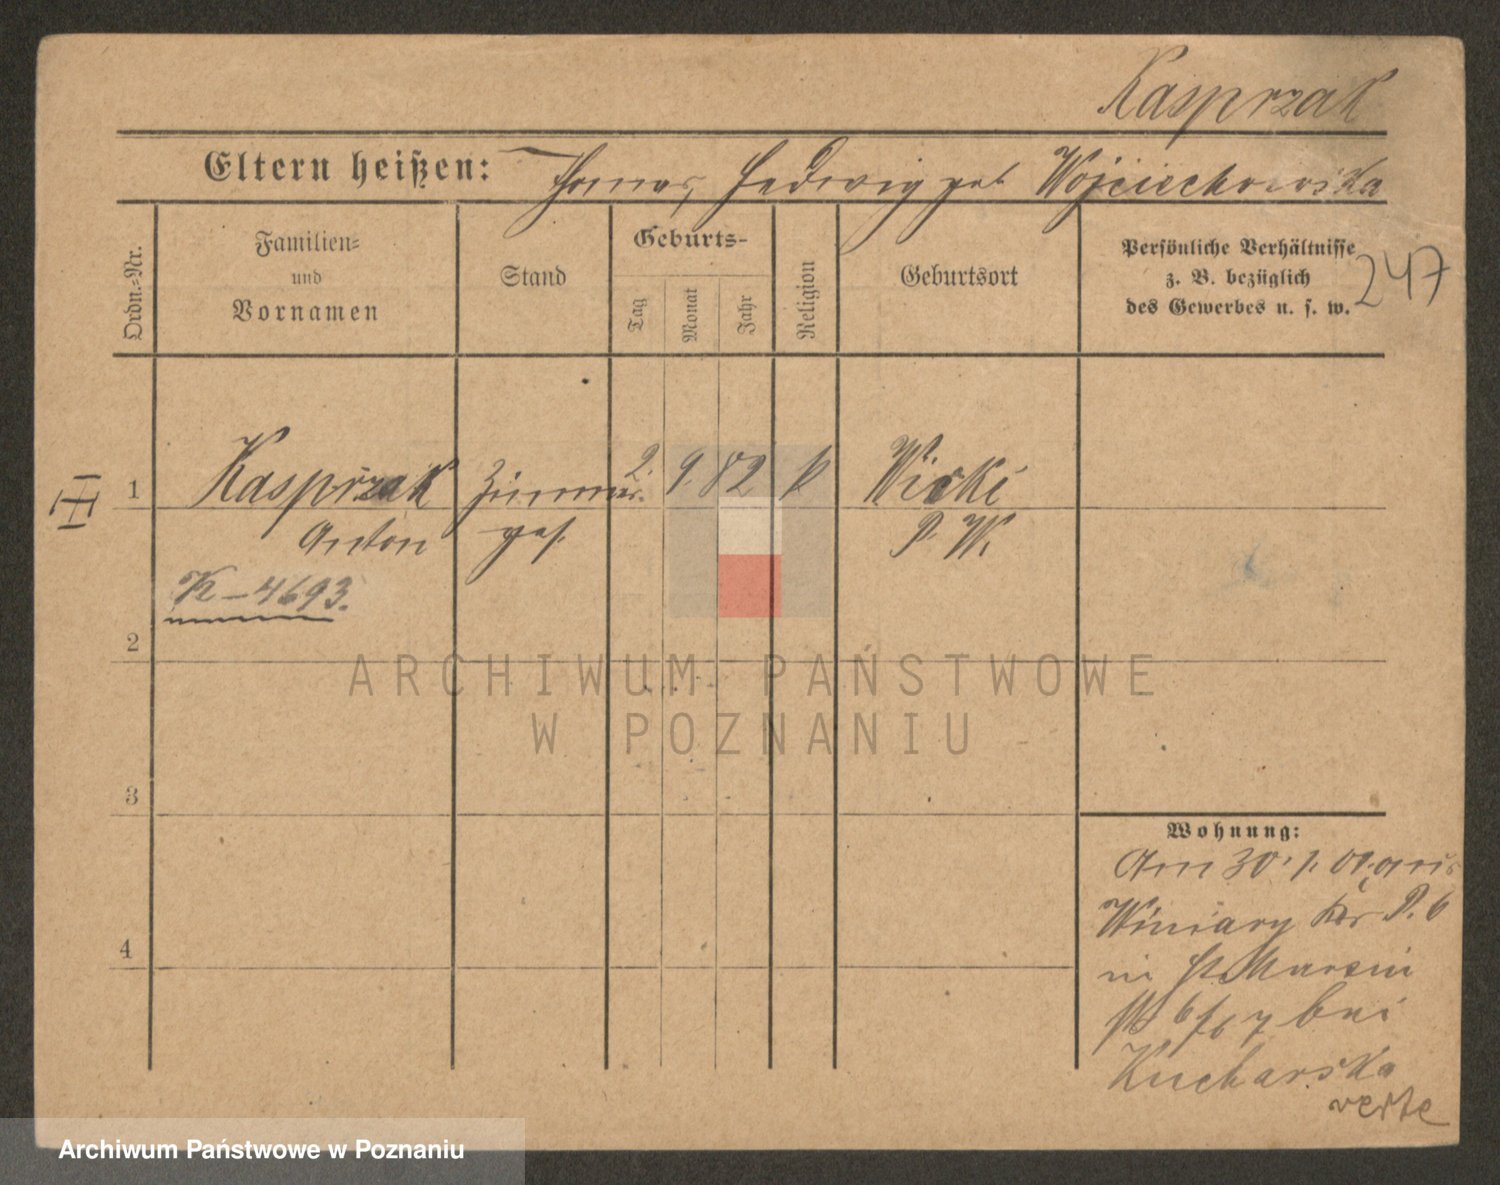 Kasprzak
Eltern heißen: Thomas, Hedwig geb Wojciechowska
Ordn.-Nr.
Familien-
und
Vornamen
Stand
Geburts-
Tag
Monat
Jahr
Religion
Geburtsort
Persönliche Verhältnisse
z. B. bezüglich
des Gewerbes u. s. w.
247
III
1
Kasprzak Zimmer. 2. 9. 82 k Wirki
Anton ges. P. W.
K-4693.
2
3
4
Wohnung:
Am 30. 1. 01. aus
Winiary Kr P. 6
in St. Marcin
6/67 bei
Kucharska
verte
ARCHIWUM PAŃSTWOWE
W POZNANIU
Archiwum Państwowe w Poznaniu